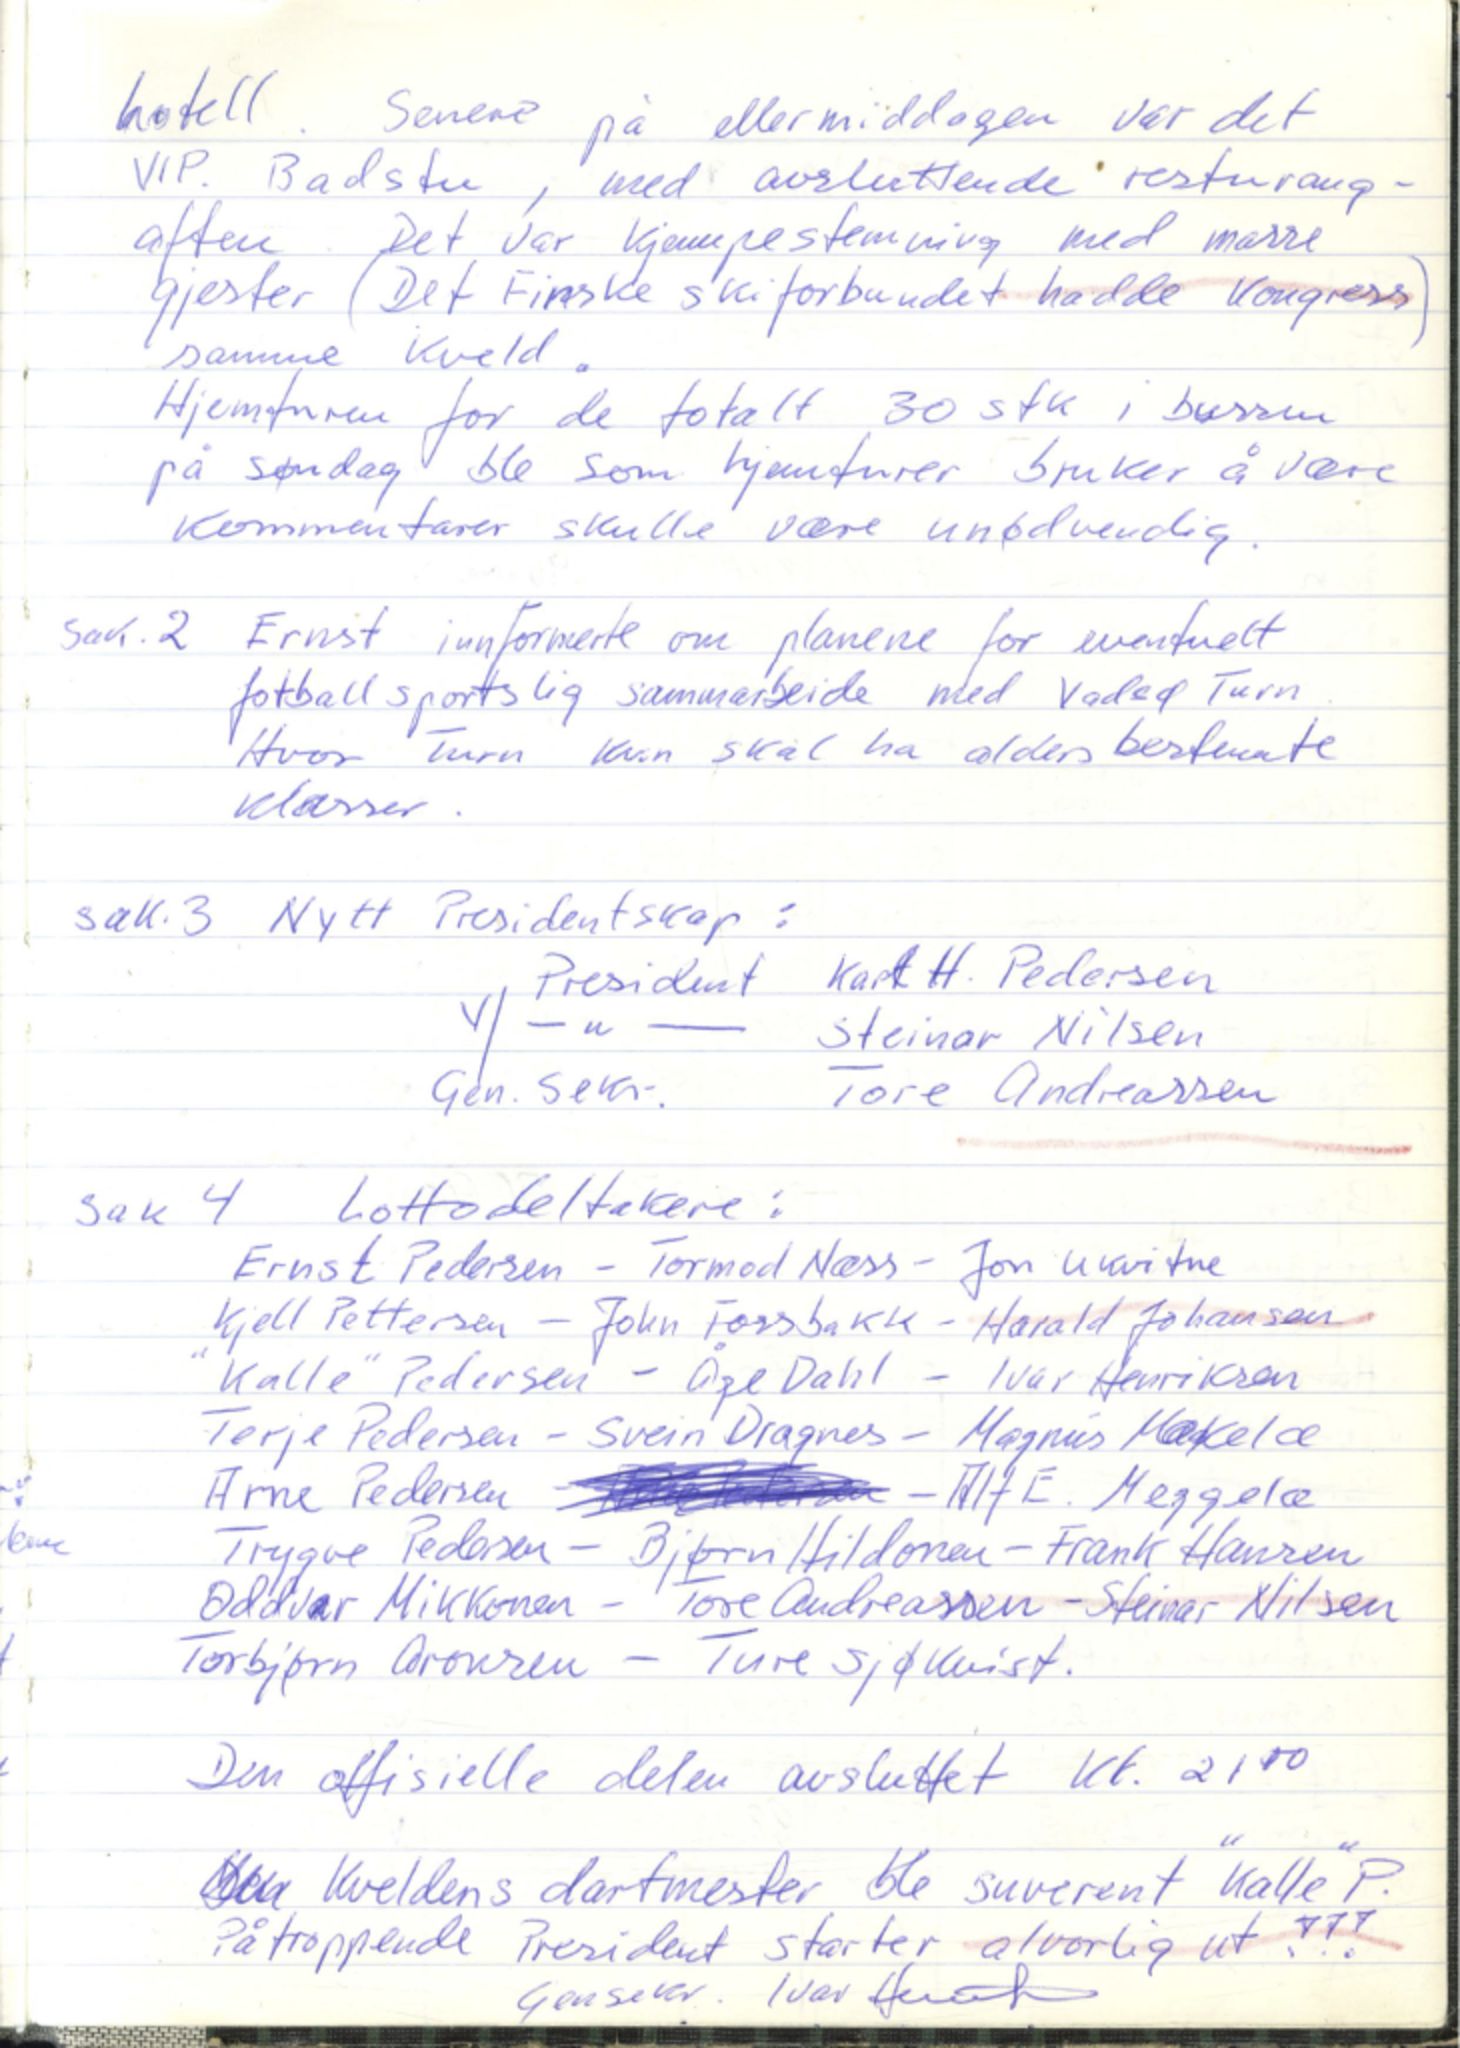 hotell. Senere på ettermiddagen var det
VIP. Badstu, med avsluttende resturang-
aften. Det var kjempestemning med masse
gjester (Det Finske skiforbundet hadde Kongress)
samme kveld.
Hjemturen for de totalt 30 stk i bussen
på søndag ble som hjemturer bruker å være
kommentarer skulle være unødvendig.
sak.2 Ernst innformerte om planene for eventuelt
fotballsportslig sammarbeide med Vadsø Turn.
Hvor Turn kun skal ha aldersbestemte
klasser.
sak.3 Nytt Presidentskap:
President Karl H. Pedersen
V/ — " — Steinar Nilsen
Gen. Sekr. Tore Andreassen
sak 4 Lottodeltakere:
Ernst Pedersen - Tormod Næss - Jon Ukvitne
Kjell Pettersen - John Fossbakk - Harald Johansen
"Kalle" Pedersen - Åge Dahl - Ivar Henriksen
Terje Pedersen - Svein Dragnes - Magnus Mækelæ
Arne Pedersen - Alf E. Meggelæ
Trygve Pedersen - Bjørn Hildonen - Frank Hansen
Oddvar Mikkonen - Tore Andreassen - Steinar Nilsen
Torbjørn Aronsen - Ture Sjøkvist.
Den offisielle delen avsluttet Kl. 21⁰⁰
Kveldens dartmester ble suverent "Kalle" P.
Påtroppende President starter alvorlig ut !!!
Gensekr. Ivar